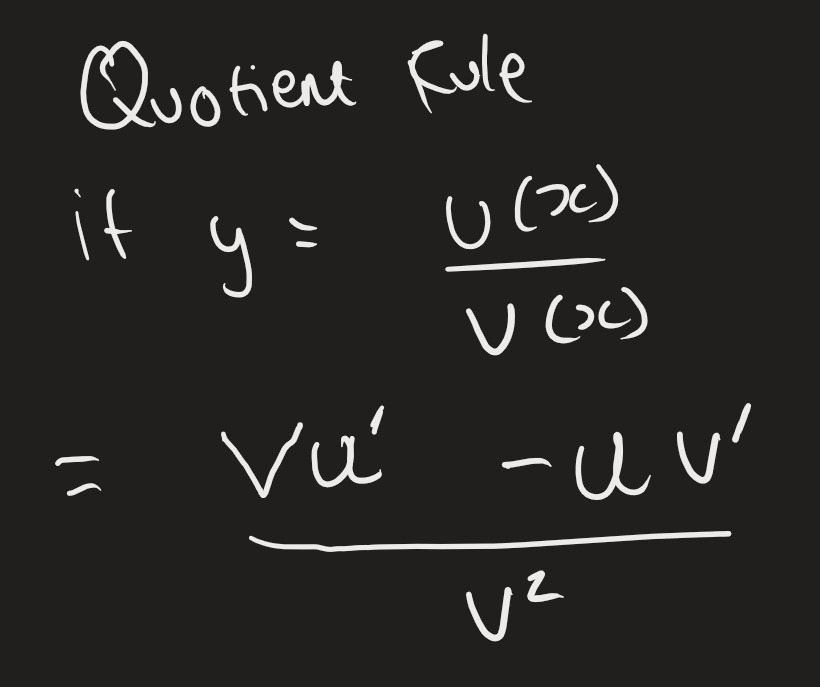 Quotient Rule
if y = u(x)
v(x)
= vu' - uv'
v²